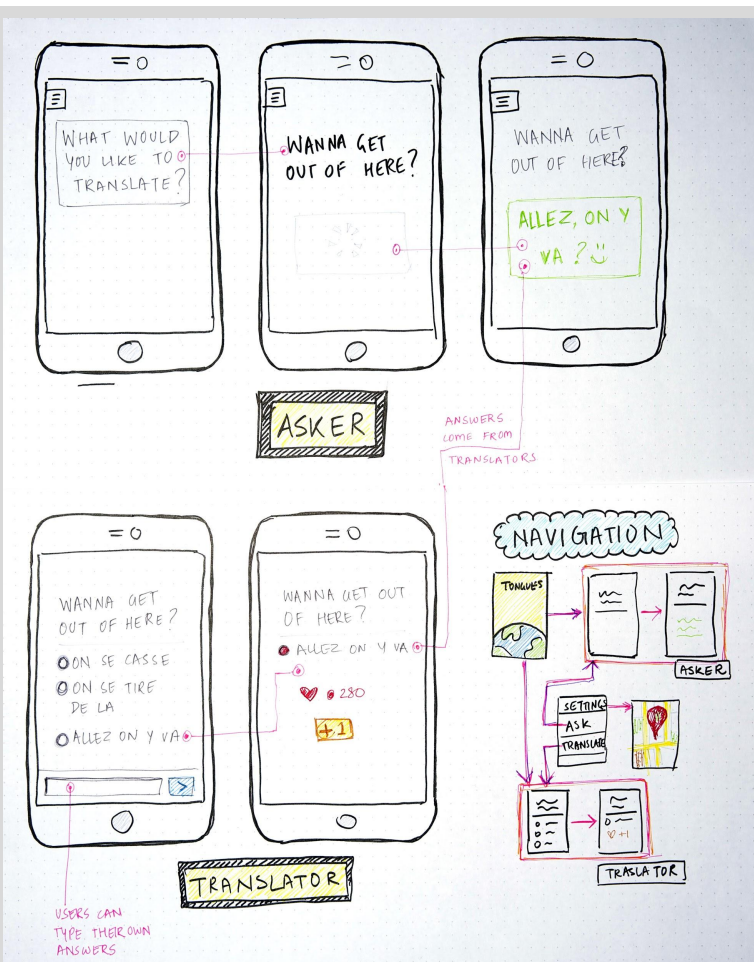 WHAT WOULD
YOU LIKE TO
TRANSLATE?
WANNA GET
OUT OF HERE?
WANNA GET
OUT OF HERE?
ALLEZ, ON Y
VA ?
ASKER
ANSWERS
COME FROM
TRANSLATORS
WANNA GET
OUT OF HERE?
ON SE CASSE
ON SE TIRE
DE LA
ALLEZ ON Y VA
>
USERS CAN
TYPE THEIR OWN
ANSWERS
WANNA GET OUT
OF HERE?
ALLEZ ON Y VA
280
+1
TRANSLATOR
NAVIGATION
TONGUES
ASKER
SETTINGS
ASK
TRANSLATE
+1
TRASLATOR